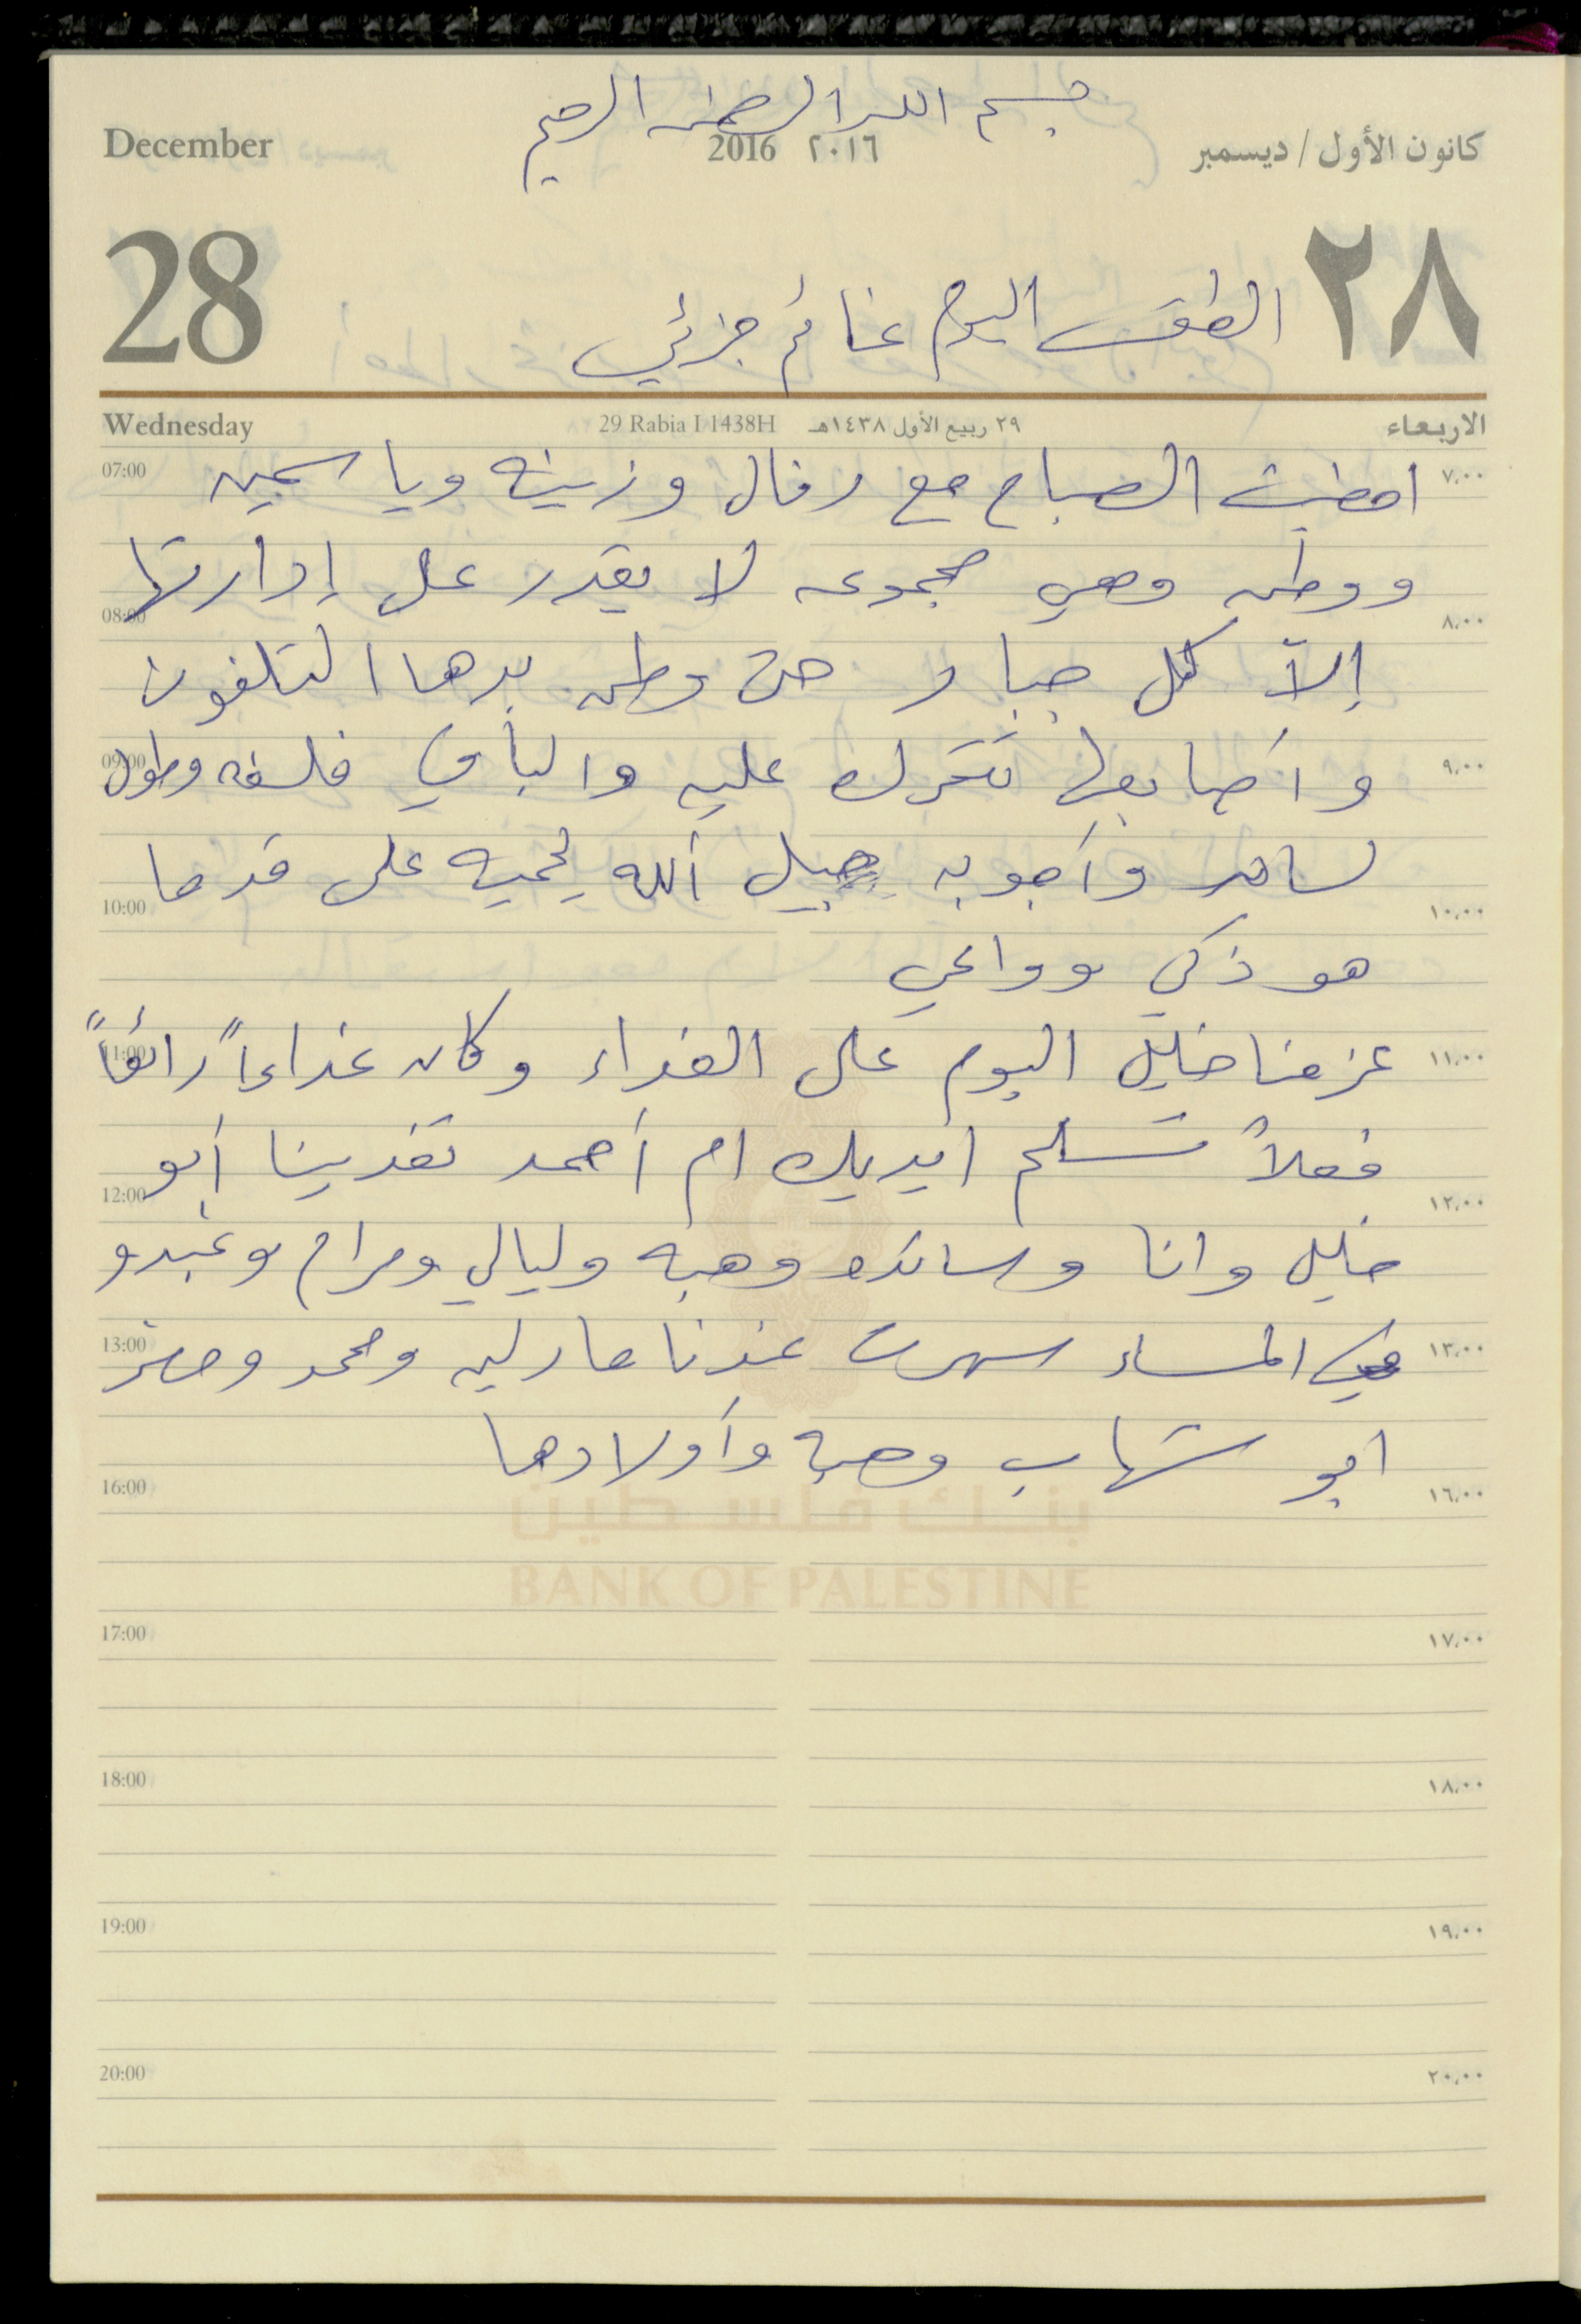 بسم الله الرحمن الرحيم
December 2016 ٢٠١٦ كانون الأول / ديسمبر
28 ٢٨
الطقس اليوم غائم جزئي
Wednesday 29 Rabia I 1438H ٢٩ ربيع الأول ١٤٣٨هـ الاربعاء
07:00 ٧،٠٠
امضيت الصباح مع رفال وزينه وياسمين
ووطن وهي مجموعه لا يقدر على إدارتها
08:00 ٨،٠٠
إلاّ كل جبار حتى وطن بدها التلفون
وأصابعها تتحرك عليه والباقي فلسفه وطول
09:00 ٩،٠٠
لسان وأجوبه جبيل الله يحميه على قد ما
10:00 ١٠،٠٠
هو ذكي وواعي
عزمنا خليل اليوم على الغداء وكان غداءاً رائعاً
11:00 ١١،٠٠
فعلاً تسلم ايديك ام أحمد تغدينا أبو
12:00 ١٢،٠٠
خليل وانا وسائده وهبه وليالي ومرام وعبدو
في المساء سهرت عندنا مادلين ومحمد
13:00 ١٣،٠٠
ابو شهاب وهبه وأولادها
16:00 ١٦،٠٠
بنك فلسطين
BANK OF PALESTINE
17:00 ١٧،٠٠
18:00 ١٨،٠٠
19:00 ١٩،٠٠
20:00 ٢٠،٠٠